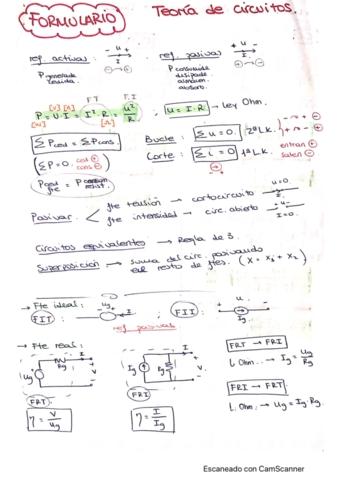 FORMULARIO
Teoría de circuitos.
ref activas: - u + I
ref. pasivas: + u - I
P generada cedida
P consumida disipada almacen absorb.
[V] [A] FT F.I
P = U·I = I²·R = u²/R
[W] [Ω]
u = I·R → Ley Ohm.
ΣPced = ΣPcons.
Bucle: Σu=0. 2ªL.K.
(ΣP=0. ced + cons -)
Corte: Σi=0 1ªL.K.
entran +
salen -
Pced fte = P consum resist.
Pasivar: < fte tensión → cortocircuito u=0
fte intensidad → circ. abierto I=0
Circuitos equivalentes → Regla de 3.
Superposición → suma del circ. pasivando el resto de ftes (X = X₁ + X₂)
→ Fte ideal:
FIT: ug I
FII: u. Ig
ref pasivas
→ Fte real:
Rg I + ug V -
FRT
η = V/ug
Ig Rg I + V -
FRI
η = I/Ig
FRT → FRI
L Ohm. → Ig = ug/Rg
FRI → FRT.
L. Ohm → Ug = Ig Rg
Escaneado con CamScanner